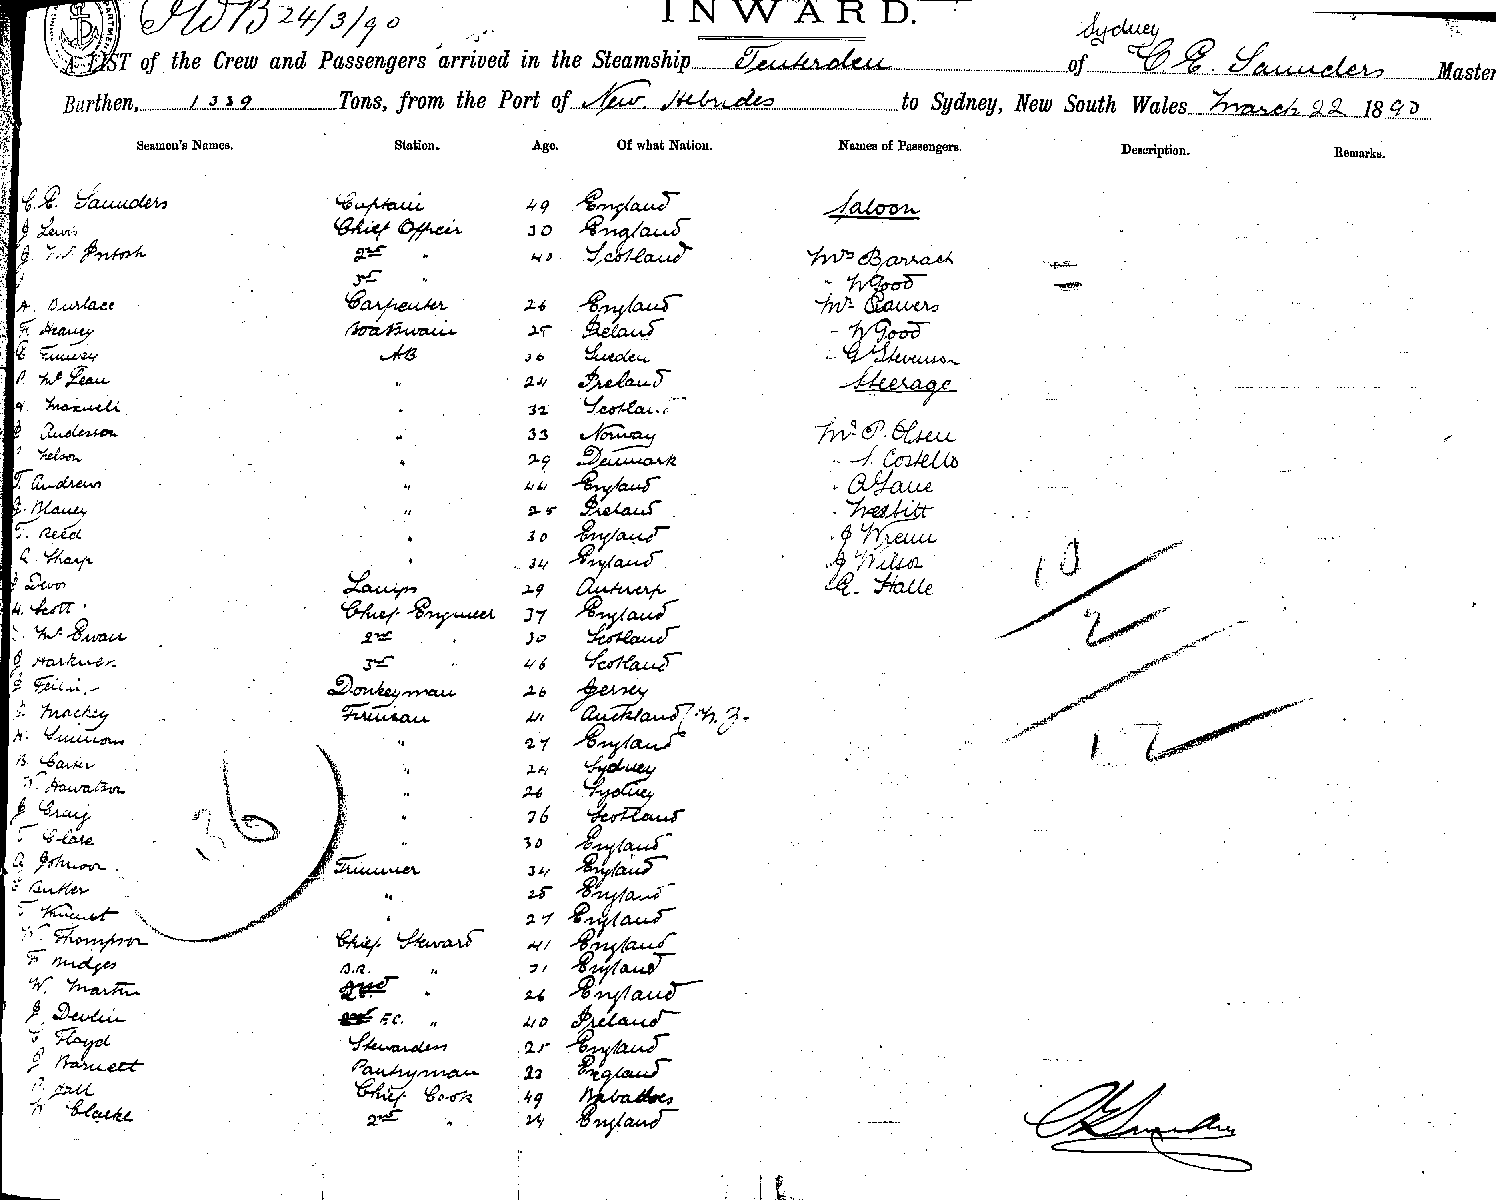 INWARD.
24/3/90
A LIST of the Crew and Passengers arrived in the Steamship Tenterden of Sydney C E. Saunders Master
Burthen, 1339 Tons, from the Port of New Hebrides to Sydney, New South Wales March 22 1890
Seamen's Names. Station. Age. Of what Nation. Names of Passengers. Description. Remarks.
C. E. Saunders Captain 49 England Saloon
J Lewis Chief Officer 30 England
J. McIntosh 2nd " 40 Scotland Mrs Barrach
3rd " " W Good
A. Durlace Carpenter 26 England Mr Rowers
F. Heaney Boatswain 25 Ireland " W Good
AB 36 Sweden " G Stevenson
P. McLean " 24 Ireland Steerage
Maxwell " 32 Scotland
Anderson " 33 Norway Mr P. Olsen
Nelson " 29 Denmark " S. Costello
T. Andrews " 44 England " Lane
J. Blaney " 25 Ireland " Nesbitt
T. Reed " 30 England " J Wrenn
R. Sharp " 34 England " J Wilson
J Devos Lamps 29 Antwerp R. Halle
H. Scott Chief Engineer 37 England
McEwan 2nd " 30 Scotland
J Harkness 3rd " 46 Scotland
Donkeyman 26 Jersey
J. Mackey Fireman 41 Auckland N.Z.
H. Simmons " 27 England
B. Carter " 24 Sydney
W. Howatson " 26 Sydney
J Craig " 36 Scotland
T Clare " 30 England
A Johnson Trimmer 34 England
Butler " 25 England
T Vincent " 27 England
W. Thompson Chief Steward 41 England
F Bridges B.R. " 31 England
W. Martin 2nd " 26 England
J. Devlin F.C. " 40 Ireland
E Floyd Stewardess 25 England
J Barnett Pantryman 22 England
P. Hall Chief Cook 49 Barbadoes
W Clarke 2nd " 24 England
36
10
2
12
C E Saunders